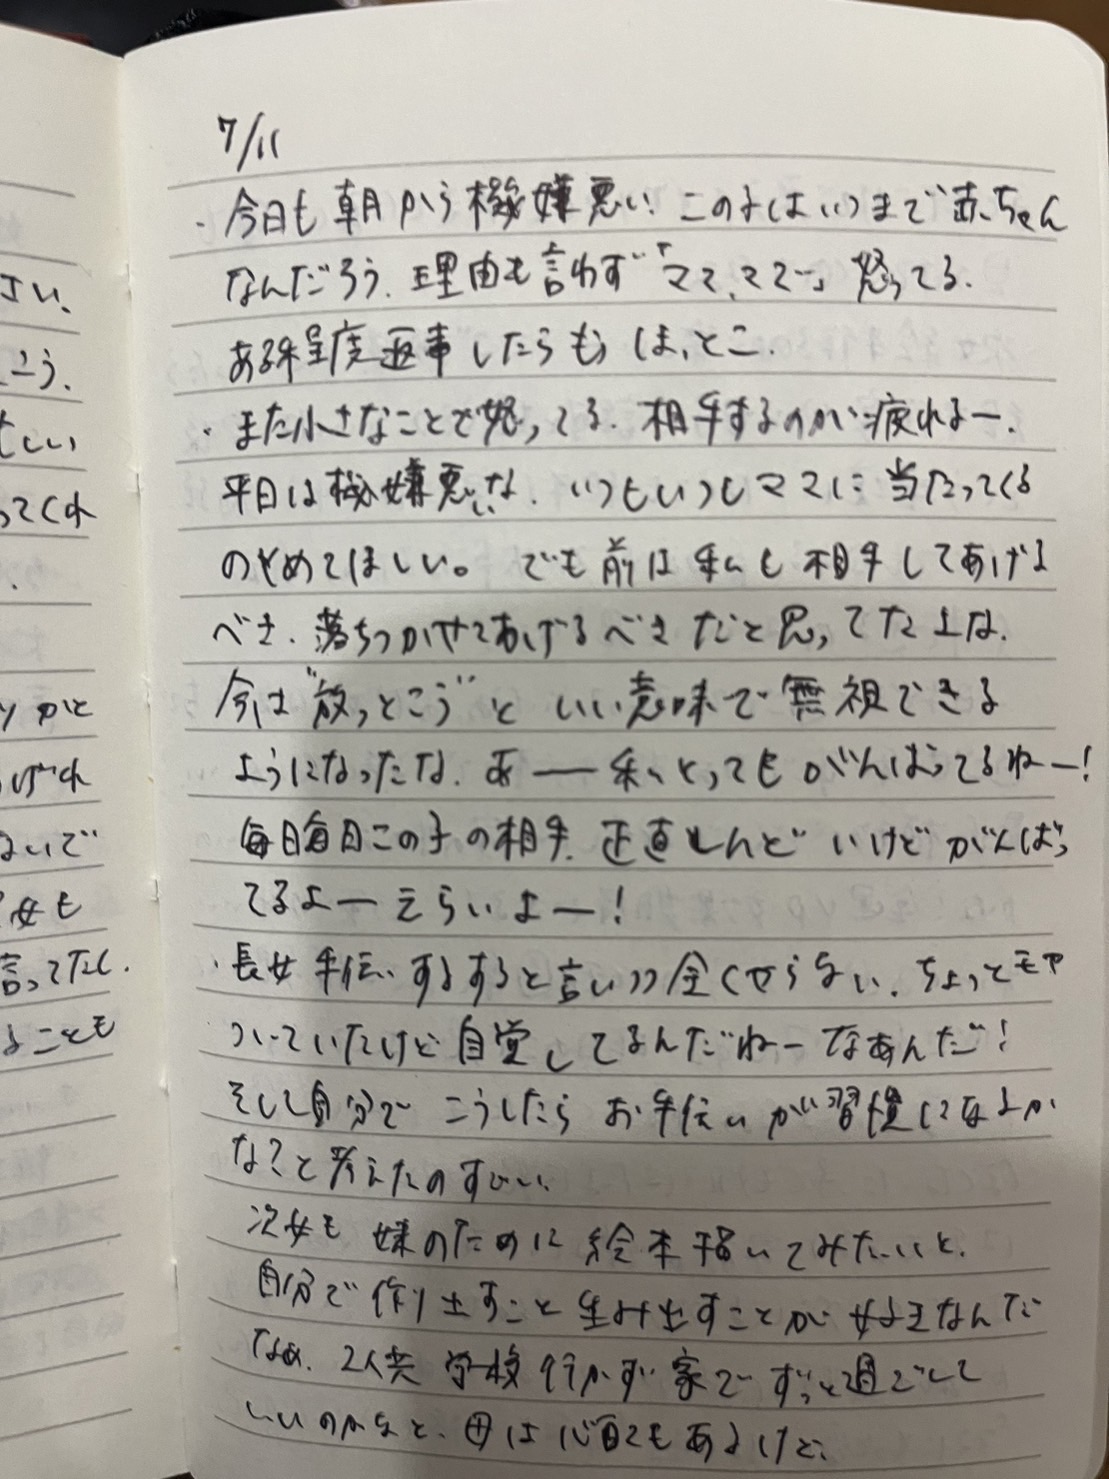 さい、
こう、
しい
ってくれ
かと
げれ
ないで
女も
言ってたし、
ことも
7/11
・今日も朝から機嫌悪い。この子はいつまで赤ちゃん
なんだろう。理由も言わず「ママ、ママ〜」怒ってる。
ある程度返事したらもうほっとこ。
・また小さなことで怒ってる。相手するのが疲れるー。
平日は機嫌悪いな。いつもいつもママに当たってくる
のやめてほしい。でも前は私も相手してあげる
べき、落ちつかせてあげるべきだと思ってたよな。
今は"放っとこう"といい意味で無視できる
ようになったな。あ――私とってもがんばってるねー!
毎日毎日この子の相手、正直しんどいけどがんばっ
てるよーえらいよー!
・長女手伝いするすると言いつつ全くせらない。ちょっとモヤ
ついていたけど自覚してるんだねーなあんだ!
そして自分でこうしたらお手伝いが習慣になるか
な?と考えたのすごい。
次女も妹のために絵本描いてみたいと。
自分で作り出すこと生み出すことが好きなんだ
なぁ。2人共学校行かず家でずっと過ごして
いいのかなと、母は心配もあるけど、